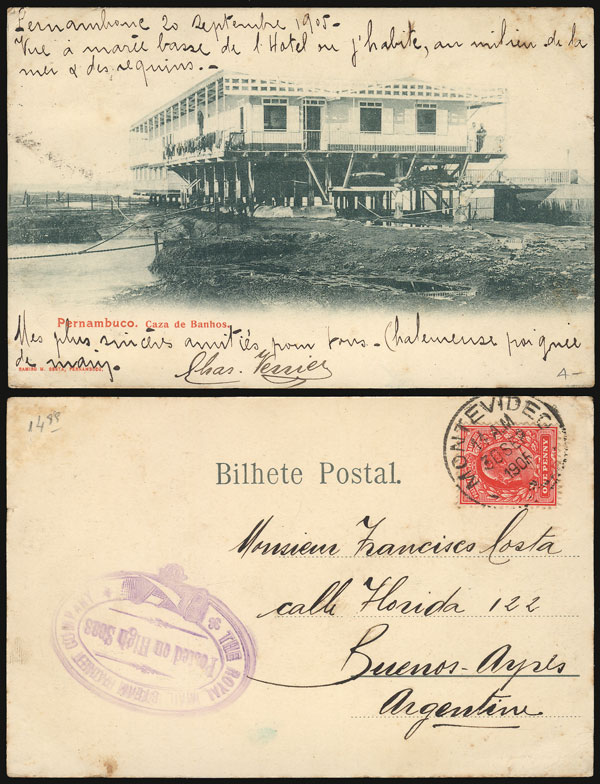 Pernambouc 20 septembre 1905-
Vue à marée basse de l'Hotel ou j'habite, au milieu de la
mer & des requins. -
Pernambuco. Caza de Banhos.
Mes plus sincères amitiés pour vous - Chaleureuse poignée
de main.
Chas. Verrier
RAMIRO M. COSTA, PERNAMBUCO.
4-
1488
MONTEVIDEO
AM
30 SEP
1905
ONE PENNY
Bilhete Postal.
Monsieur Francisco Costa
calle Florida 122
Buenos-Ayres
Argentine
THE ROYAL MAIL STEAM PACKET COMPANY
Posted on High Seas